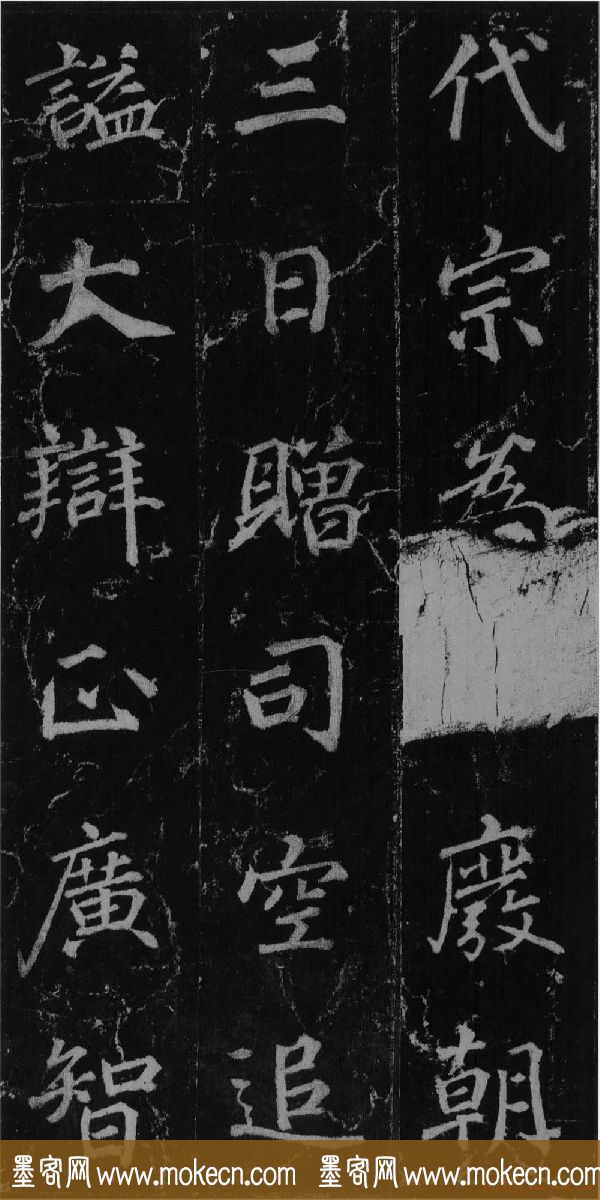 代宗為廢朝
三日贈司空追
謚大辯正廣智
墨客网 www.mokecn.com 墨客网 www.mokecn.com